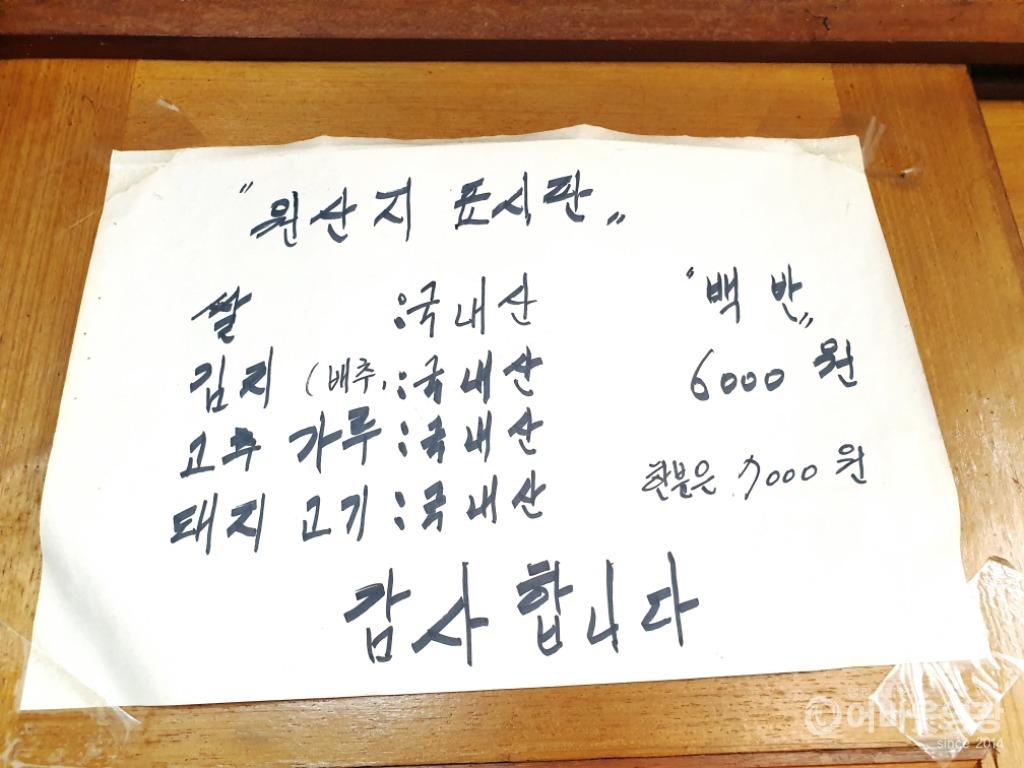 "원산지 표시판"
쌀 :국내산
김치 (배추, :국내산
고추 가루 :국내산
돼지 고기 :국내산
"백반"
6000 원
한분은 7000 원
감사합니다
since 2014